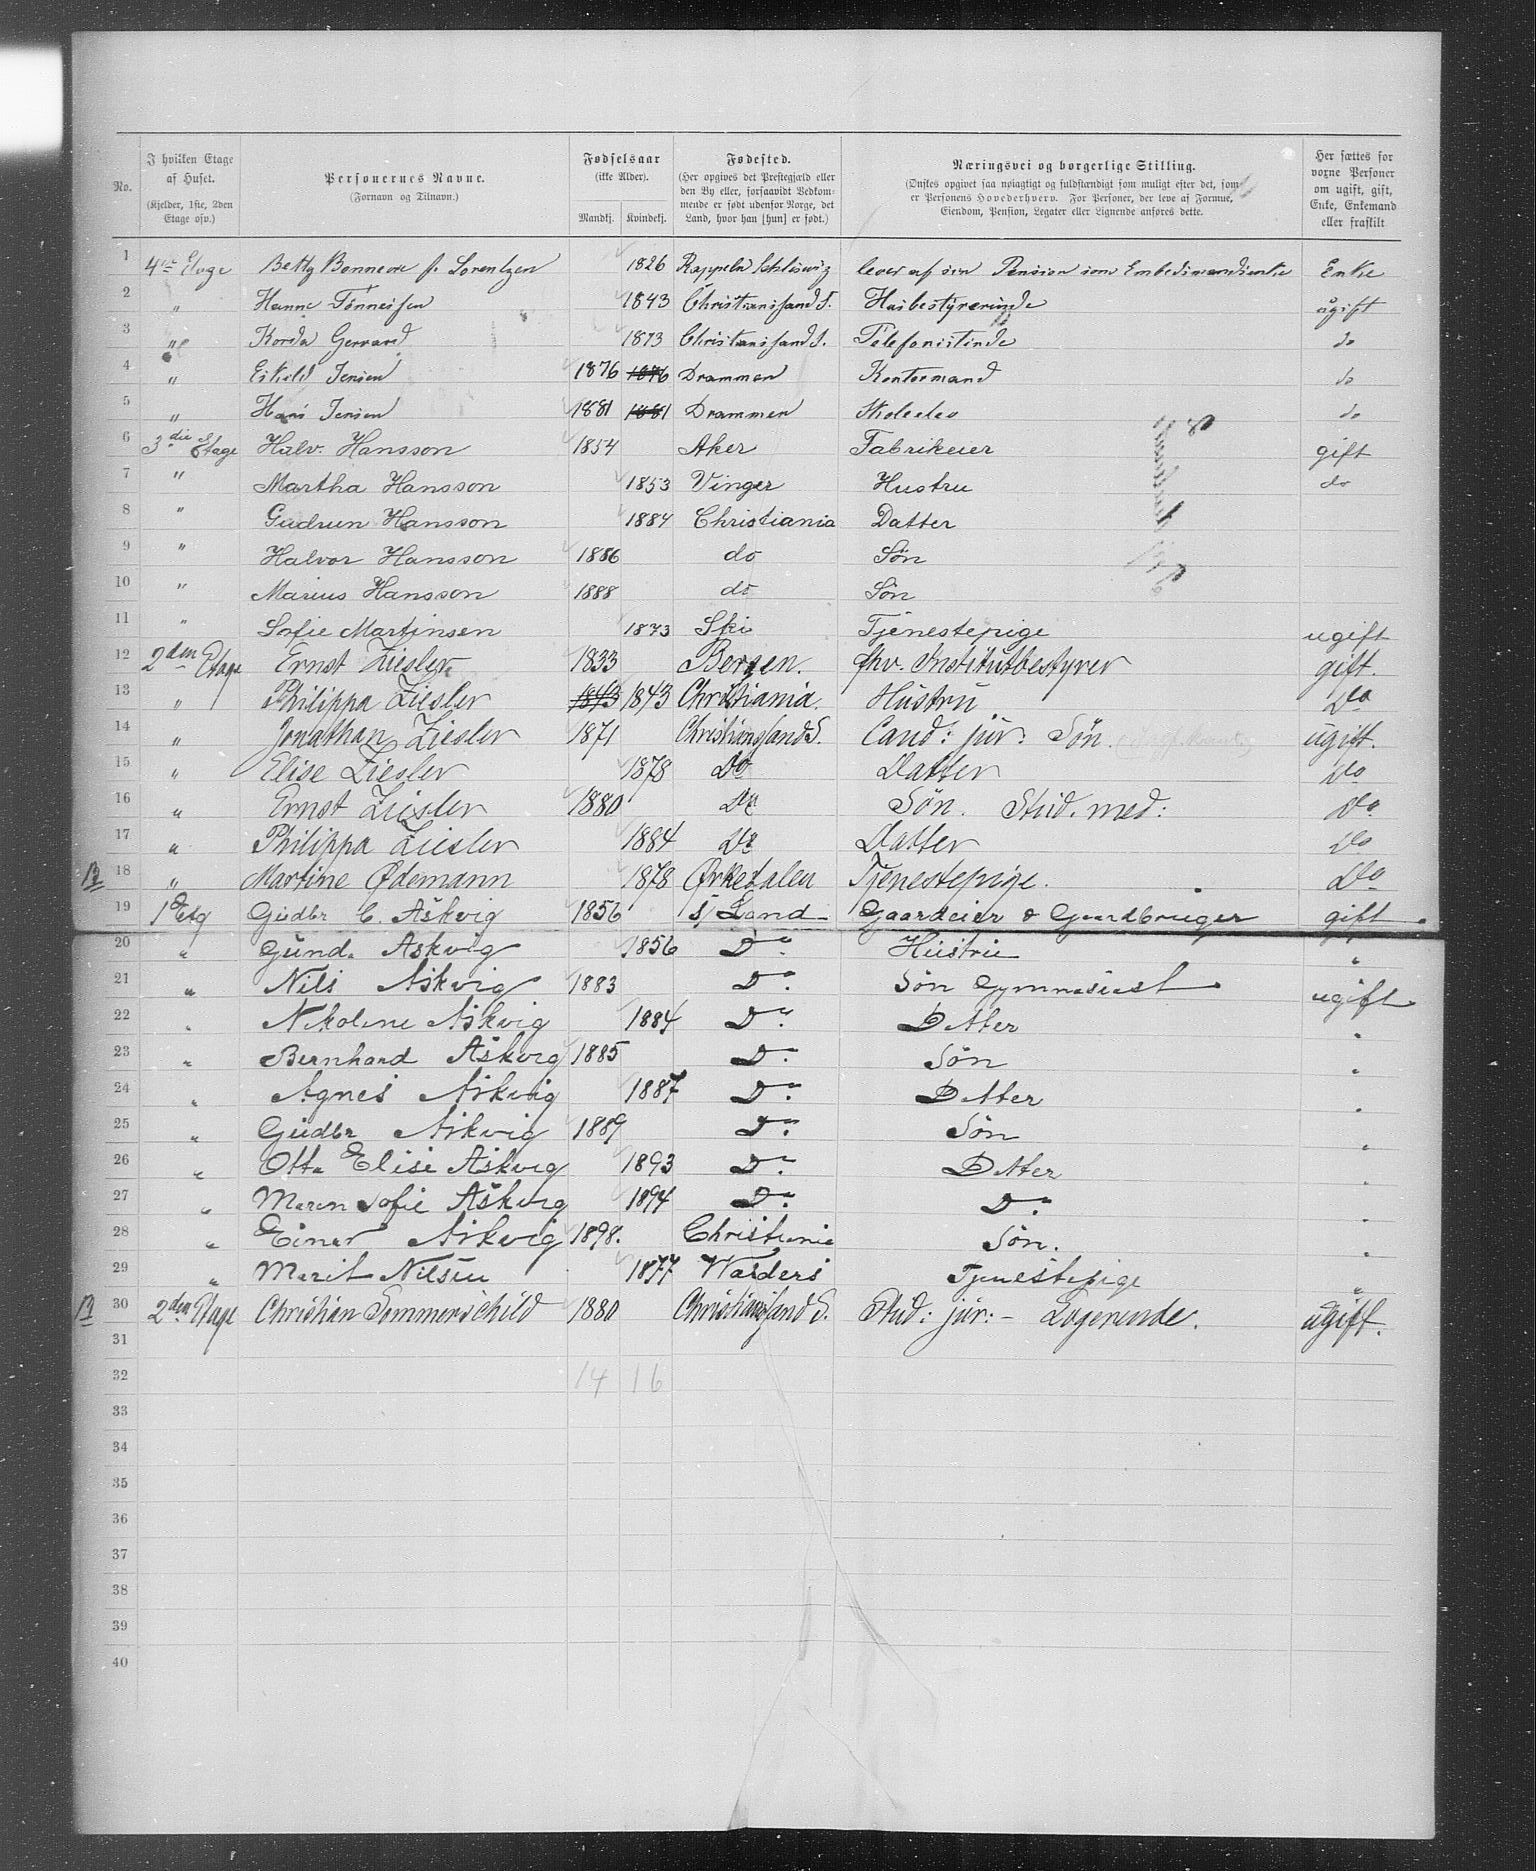 No. | I hvilken Etage af Huset. (Kjelder, 1ste, 2den Etage osv.) | Personernes Navne. (Fornavn og Tilnavn.) | Fødselsaar (ikke Alder). Mandkj. | Kvindekj. | Fødested. (Her opgives det Prestegjæld eller den By eller, forsaavidt Vedkommende er født udenfor Norge, det Land, hvor han [hun] er født.) | Næringsvei og borgerlige Stilling. (Ønskes opgivet saa nøiagtigt og fuldstændigt som muligt efter det, som er Personens Hovederhverv. For Personer, der leve af Formue, Eiendom, Pension, Legater eller Lignende anføres dette. | Her sættes for voxne Personer om ugift, gift, Enke, Enkemand eller fraskilt
1 4de Etage Betty Bonnevie f. Lorentzen 1826 Kappeln Schleswig lever af sin Pension som Embedsmandsenke Enke
2 " Hanne Tønnessen 1843 Christianssand S. Husbestyrerinde ugift
3 " Korda Gerrard 1873 Christianssand S. Telefonistinde do
4 " Eskild Jensen 1876 1876 Drammen Kontormand do
5 " Hans Jensen 1881 1881 Drammen Skoleelev do
6 3die Etage Halv. Hansson 1854 Aker Fabrikeier gift
7 " Martha Hansson 1853 Vinger Hustru do
8 " Gudrun Hansson 1884 Christiania Datter
9 " Halvor Hansson 1886 do Søn
10 " Marius Hansson 1888 do Søn
11 " Sofie Martinsen 1873 Ski Tjenestepige ugift
12 2den Etage Ernst Ziesler 1833 Bergen. fhv. Institutbestyrer gift.
13 " Philippa Ziesler 1843 1843 Christiania. Hustru Do
14 " Jonathan Ziesler 1871 Christianssand S. Cand: jur. Søn. ugift.
15 " Elise Ziesler 1878 Do Datter Do
16 " Ernst Ziesler 1880 Do Søn. Stud. med: Do
17 " Philippa Ziesler 1884 Do Datter Do
18 " Martine Ødemann 1878 Ørkedalen Tjenestepige. Do
19 1 Etg Gudbr C. Askvig 1856 S/ Land Gaardeier & Gaardbruger gift
20 " Gund. Askvig 1856 Do Hustru "
21 " Nils Askvig 1883 Do. Søn Gymnasiast ugift
22 " Nikoline Askvig 1884 Do. Datter "
23 " Bernhard Askvig 1885 Do. Søn "
24 " Agnes Askvig 1887 Do. Datter "
25 " Gudbr Askvig 1889 Do. Søn "
26 " Otta Elise Askvig 1893 Do. Datter "
27 " Maren Sofie Askvig 1894 Do. Do "
28 " Einar Askvig 1898. Christiania Søn. "
29 " Marit Nilsen 1877 Valders Tjenestepige "
30 2den Etage Christian Sommerschild 1880 Christianssand S. Stud: jur: - Logerende. ugift.
31
32 14 16
33
34
35
36
37
38
39
40